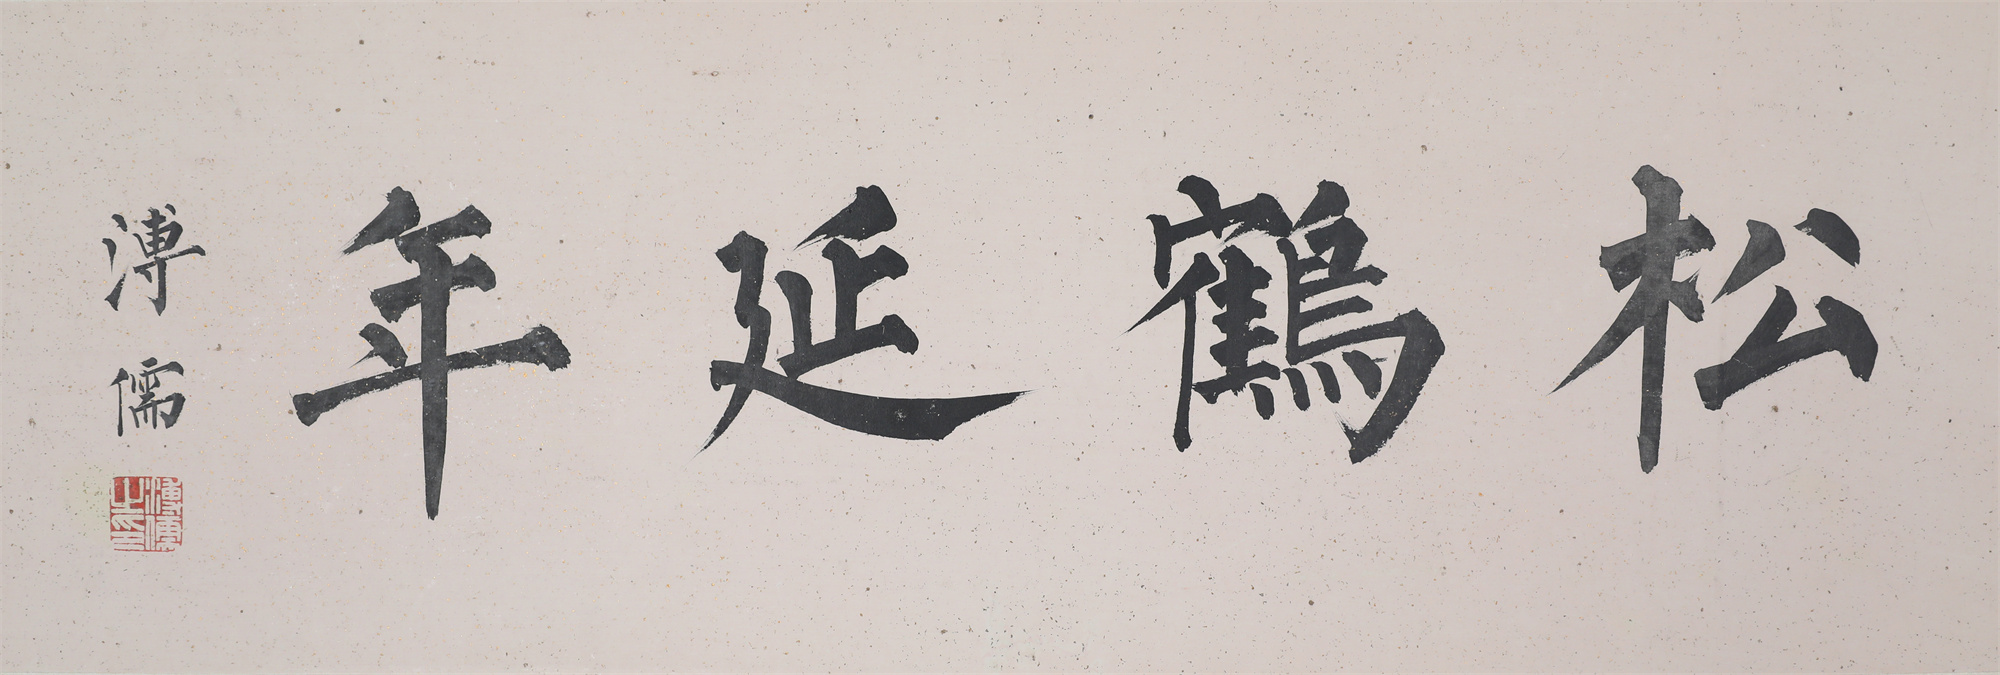 松鶴延年
溥儒
溥儒之印